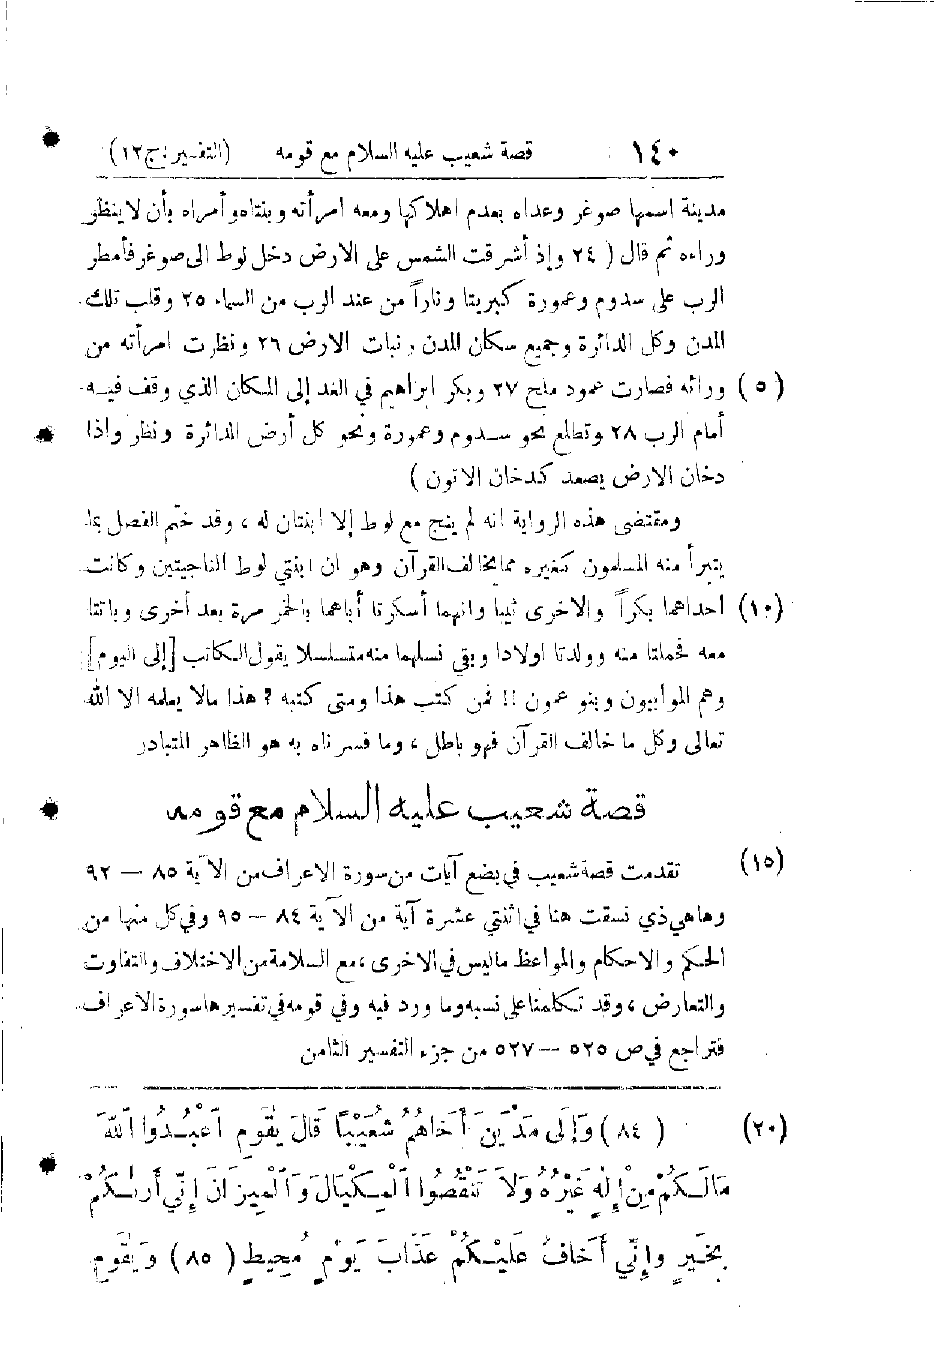 ١٤٠ قصة شعيب عليه السلام مع قومه (التفسير: ج١٢)
مدينة اسمها صوغر وعداه بعدم اهلاكها ومعه امرأته وبنتاه وأمراه بأن لا ينظر
وراءه ثم قال ( ٢٤ وإذ أشرقت الشمس على الارض دخل لوط الى صوغر فأمطر
الرب على سدوم وعمورة كبريتا وناراً من عند الرب من السماء ٢٥ وقلب تلك
المدن وكل الدائرة وجميع سكان المدن ونبات الارض ٢٦ ونظرت امرأته من
(٥) ورائه فصارت عمود ملح ٢٧ وبكر ابراهيم في الغد إلى المكان الذي وقف فيه
أمام الرب ٢٨ وتطلع نحو سدوم وعمورة ونحو كل أرض الدائرة ونظر واذا
دخان الارض يصعد كدخان الاتون )
ومقتضى هذه الرواية انه لم ينج مع لوط إلا ابنتان له ، وقد ختم الفصل بما
يتبرأ منه المسلمون كغيره مما يخالف القرآن وهو ان ابنتي لوط الناجيتين وكانت
(١٠) احداهما بكراً والاخرى ثيبا وانهما أسكرتا أباهما بالخمر مرة بعد أخرى وباتتا
معه فحملتا منه وولدتا اولادا وبقي نسلهما منه متسلسلا يقول الكاتب [إلى اليوم]
وهم الموابيون وبنو عمون !! فمن كتب هذا ومتى كتبه ؟ هذا مالا يعلمه الا الله
تعالى وكل ما خالف القرآن فهو باطل ، وما فسرناه به هو الظاهر المتبادر
قصة شعيب عليه السلام مع قومه
(١٥) تقدمت قصة شعيب في بضع آيات من سورة الاعراف من الآية ٨٥ — ٩٢
وهاهي ذي نسقت هنا في اثنتي عشرة آية من الآية ٨٤ – ٩٥ وفي كل منها من
الحكم والاحكام والمواعظ ما ليس في الاخرى ، مع السلامة من الاختلاف والتفاوت
والتعارض ، وقد تكلمنا على نسبه وما ورد فيه وفي قومه في تفسيرها سورة الاعراف
فتراجع في ص ٥٢٥ – ٥٢٧ من جزء التفسير الثامن
(٢٠) ( ٨٤ ) وَإِلَى مَدْيَنَ أَخَاهُمْ شُعَيْبًا قَالَ يٰقَوْمِ اعْبُدُوا اللهَ
مَالَكُمْ مِنْ إِلٰهٍ غَيْرُهُ وَلَا تَنْقُصُوا الْمِكْيَالَ وَالْمِيزَانَ إِنِّي أَرَاكُمْ
بِخَيْرٍ وإِنِّي أَخَافُ عَلَيْكُمْ عَذَابَ يَوْمٍ مُحِيطٍ ( ٨٥ ) وَيٰقَوْمِ